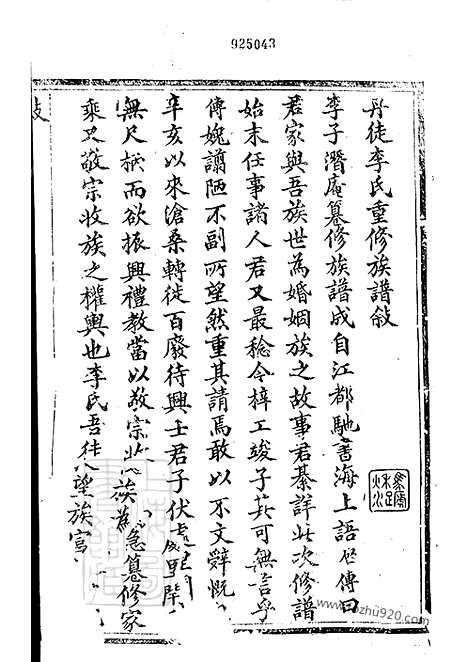 925043
丹徒李氏重修族譜敍
李子潛庵纂修族譜成自江都馳書海上語 傳曰
君家與吾族世為婚姻族之故事君綦詳此次修譜
始末任事諸人君又最稔今梓工竣子 可無言乎
傳婉譾陋不副所望然重其請焉敢以不文辭慨
辛亥以來滄桑轉徙百廢待興士君子伏
無尺柄而欲振興禮教當以敬宗收族為 急纂修家
乘又敬宗收族之權輿也李氏吾徒 望族
敍
zhu920.com